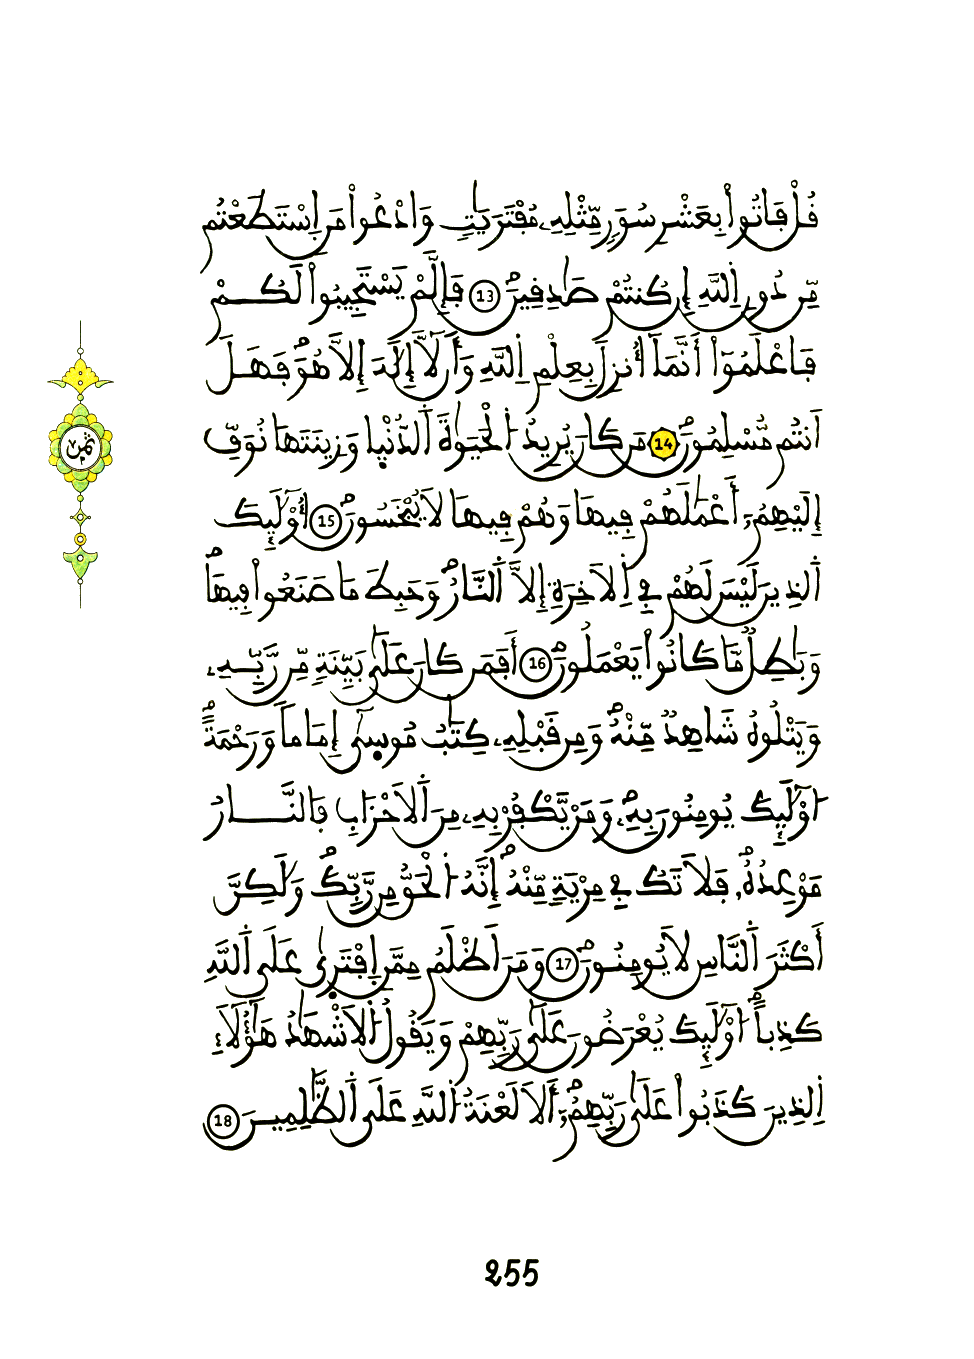 قُلْ فَاتُواْ بِعَشْرِ سُوَرٖ مِّثْلِهِۦ مُفْتَرَيَٰتٖ وَادْعُواْ مَنِ اِ۪سْتَطَعْتُم
مِّن دُونِ اِ۬للَّهِ إِن كُنتُمْ صَٰدِقِينَۖ 13 فَإِلَّمْ يَسْتَجِيبُواْ لَكُمْ
فَاعْلَمُوٓاْ أَنَّمَآ أُنزِلَ بِعِلْمِ اِ۬للَّهِ وَأَن لَّآ إِلَٰهَ إِلَّا هُوَۖ فَهَلَ
اَنتُم مُّسْلِمُونَۖ 14 مَن كَانَ يُرِيدُ اُ۬لْحَيَوٰةَ اَ۬لدُّنْي۪ا وَزِينَتَهَا نُوَفِّ
إِلَيْهِمُۥٓ أَعْمَٰلَهُمْ فِيهَا وَهُمْ فِيهَا لَا يُبْخَسُونَۖ 15 أُوْلَٰٓئِكَ
اَ۬لذِينَ لَيْسَ لَهُمْ فِي اِ۬لَاخِرَةِ إِلَّا اَ۬لنَّارُۖ وَحَبِطَ مَا صَنَعُواْ فِيهَاۖ
وَبَٰطِلٞ مَّا كَانُواْ يَعْمَلُونَۖ 16 أَفَمَن كَانَ عَلَىٰ بَيِّنَةٖ مِّن رَّبِّهِۦ
وَيَتْلُوهُ شَاهِدٞ مِّنْهُۖ وَمِن قَبْلِهِۦ كِتَٰبُ مُوس۪ىٰٓ إِمَاماٗ وَرَحْمَةًۖ
ا۟وْلَٰٓئِكَ يُومِنُونَ بِهِۦۖ وَمَنْ يَّكْفُرْ بِهِۦ مِنَ اَ۬لَاحْزَابِ فَالنَّارُ
مَوْعِدُهُۥۖ فَلَا تَكُ فِي مِرْيَةٖ مِّنْهُۖ إِنَّهُ اُ۬لْحَقُّ مِن رَّبِّكَۖ وَلَٰكِنَّ
أَكْثَرَ اَ۬لنَّاسِ لَا يُومِنُونَۖ 17 وَمَنَ اَظْلَمُ مِمَّنِ اِ۪فْتَر۪ىٰ عَلَى اَ۬للَّهِ
كَذِباًۖ ا۟وْلَٰٓئِكَ يُعْرَضُونَ عَلَىٰ رَبِّهِمْ وَيَقُولُ اُ۬لَاشْهَٰدُ هَٰٓؤُلَآءِ
اِ۬لذِينَ كَذَبُواْ عَلَىٰ رَبِّهِمُۥٓۖ أَلَا لَعْنَةُ اُ۬للَّهِ عَلَى اَ۬لظَّٰلِمِينَ 18
ثمن
255